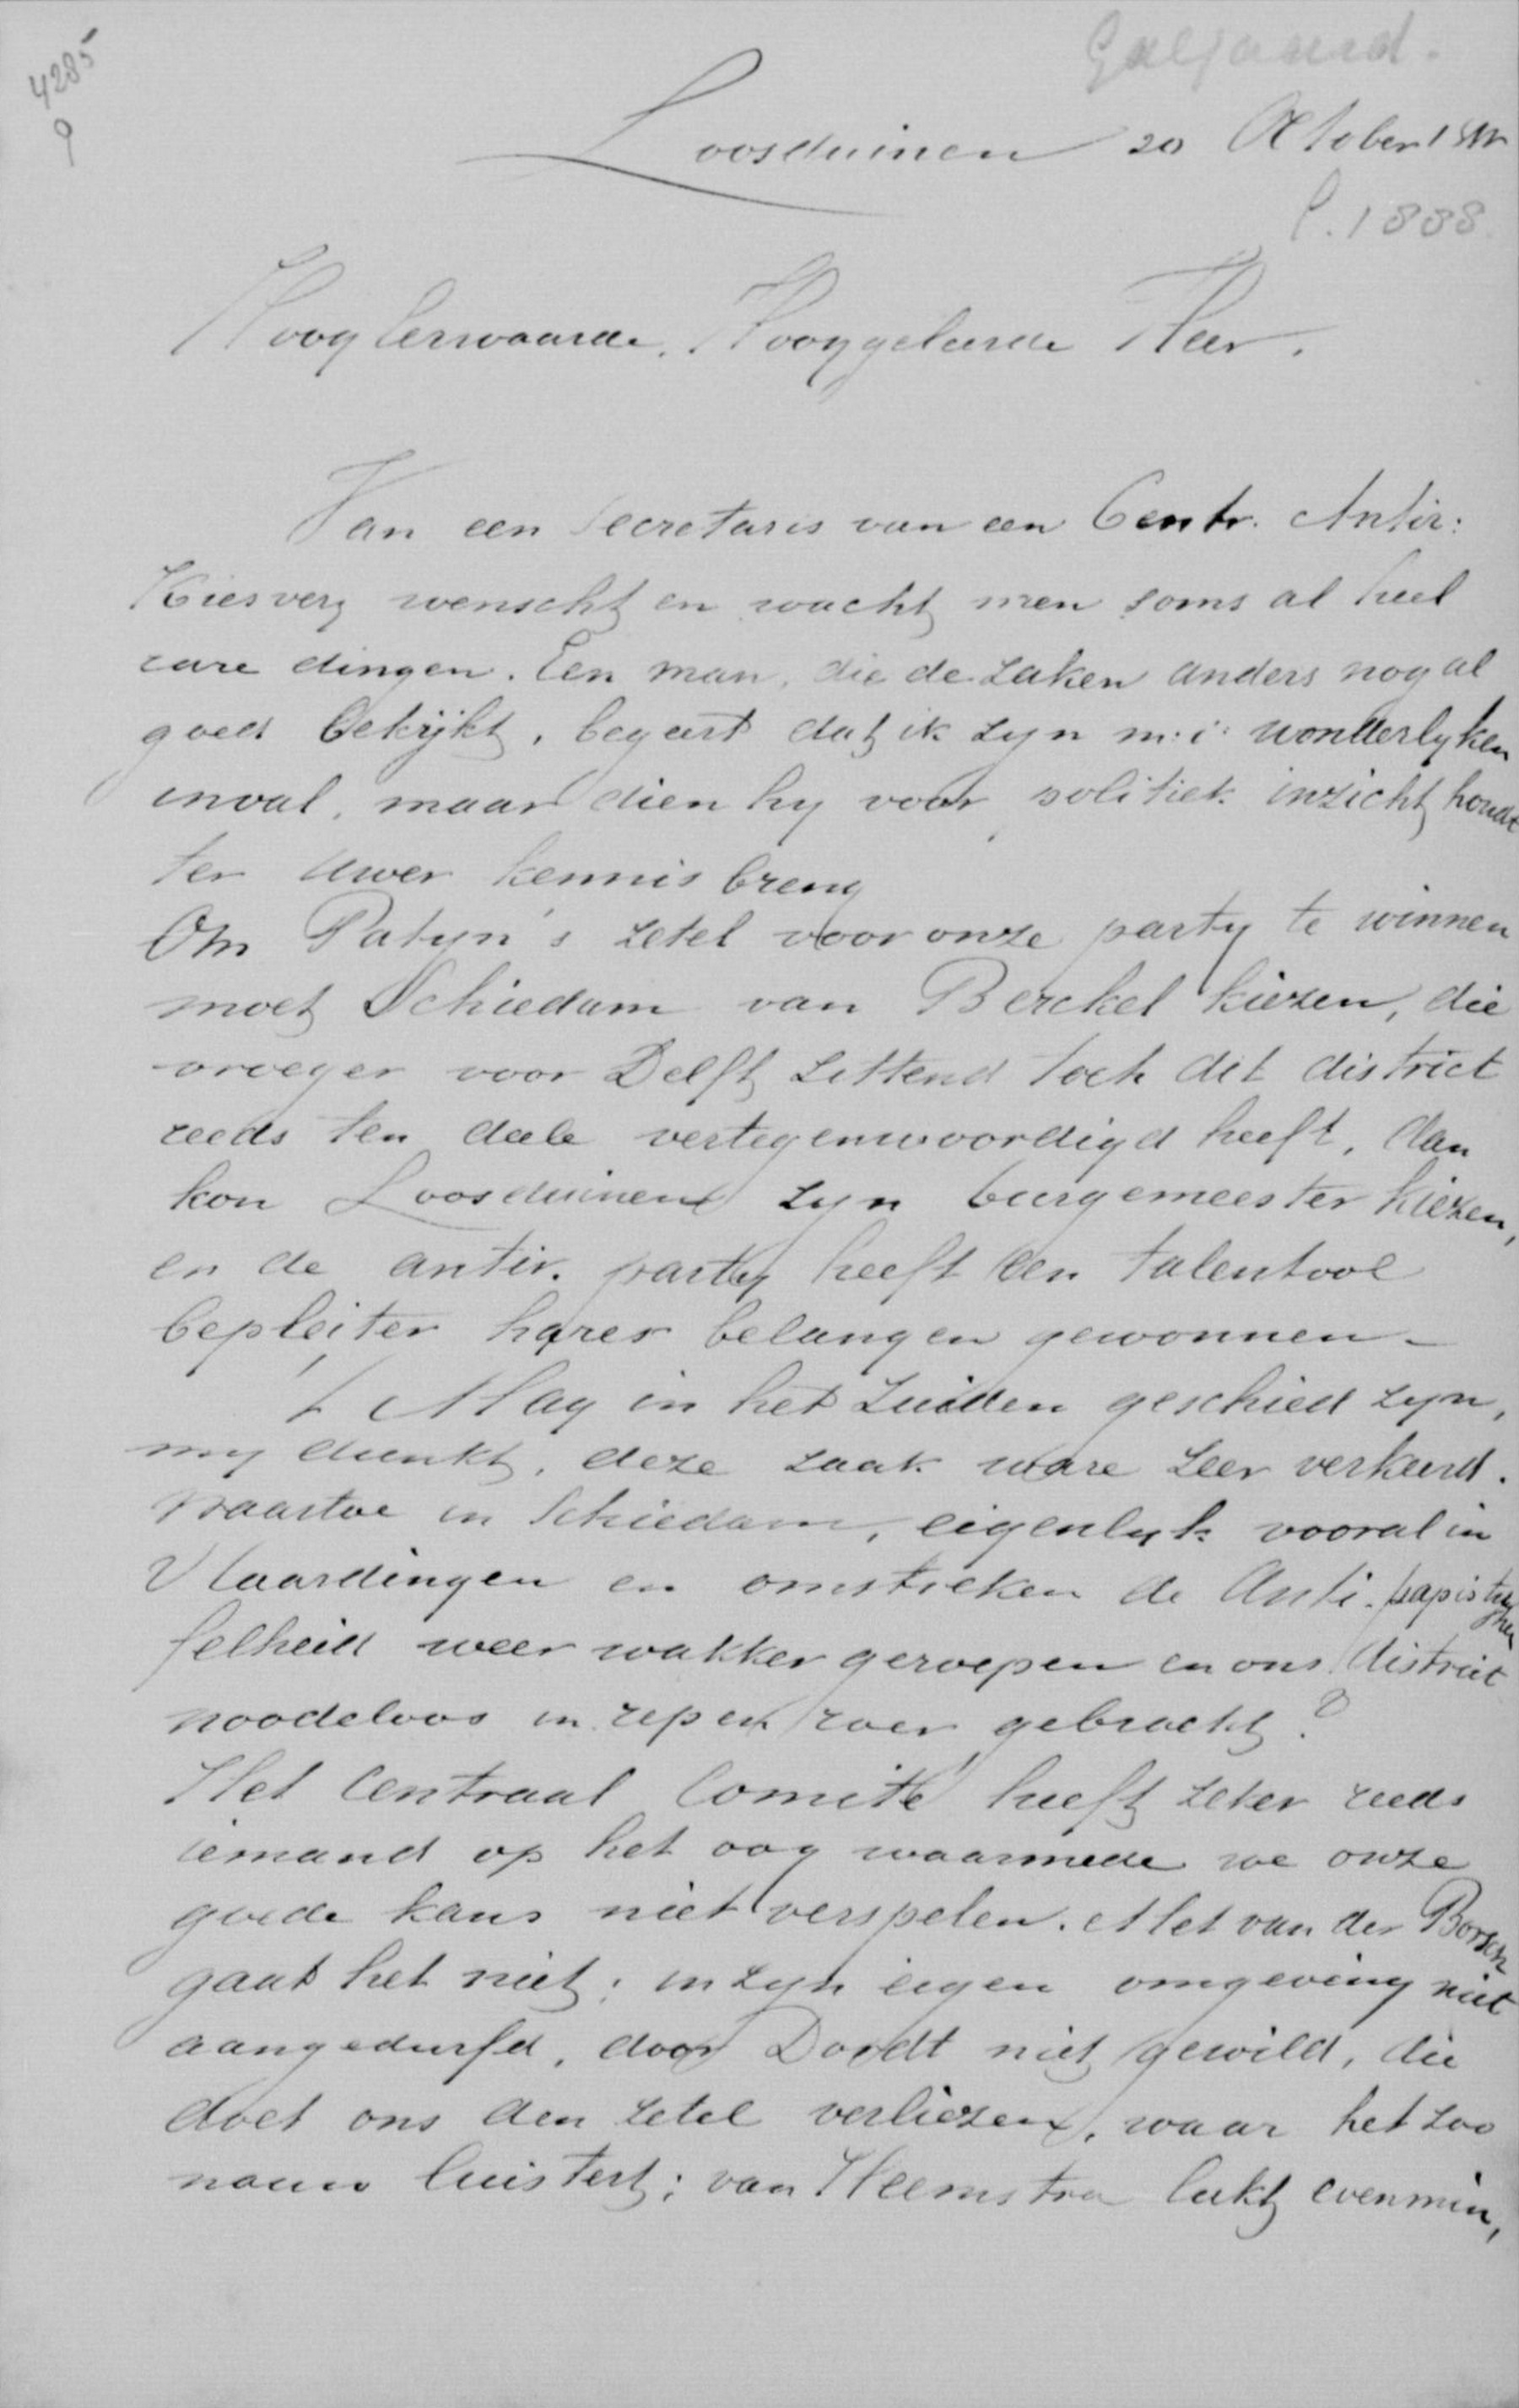 4285
9
Galjaard.
Loosduinen 20 October 1888
P. 1888.
Hoog Eerwaarde, Hooggeleerde Heer.
Van een Secretaris van een Centr. Antir:
Kiesverg wenscht en wacht men soms al heel
rare dingen. Een man, die de zaken anders nogal
goed bekijkt, begeert dat ik zyn m: i: wonderlyken
inval, maar dien hy voor politiek inzicht houdt
ter uwer kennis breng
Om Patyn's zetel voor onze party te winnen
moet Schiedam van Berckel kiezen, die
vroeger voor Delft zittend toch dit district
reeds ten deele vertegenwoordigd heeft, dan
kon Loosduinen zyn burgemeester kiezen,
en de antir. party heeft een talentvol
bepleiter harer belangen gewonnen -
't Mag in het Zuiden geschied zyn,
my dunkt, deze zaak ware zeer verkeerd.
Waartoe in Schiedam, eigenlyk vooral in
Vlaardingen en omstreken de Anti-papistische
felheid weer wakker geroepen en ons district
noodeloos in rep en roer gebracht?
Het Centraal Comité heeft zeker reeds
iemand op het oog waarmede we onze
goede kans niet verspelen. Met van der Borsch
gaat het niet; in zyn eigen omgeving niet
aangedurfd, door Dordt niet gewild, die
doet ons den zetel verliezen, waar het zoo
nauw luistert; van Heemstra lukt evenmin,